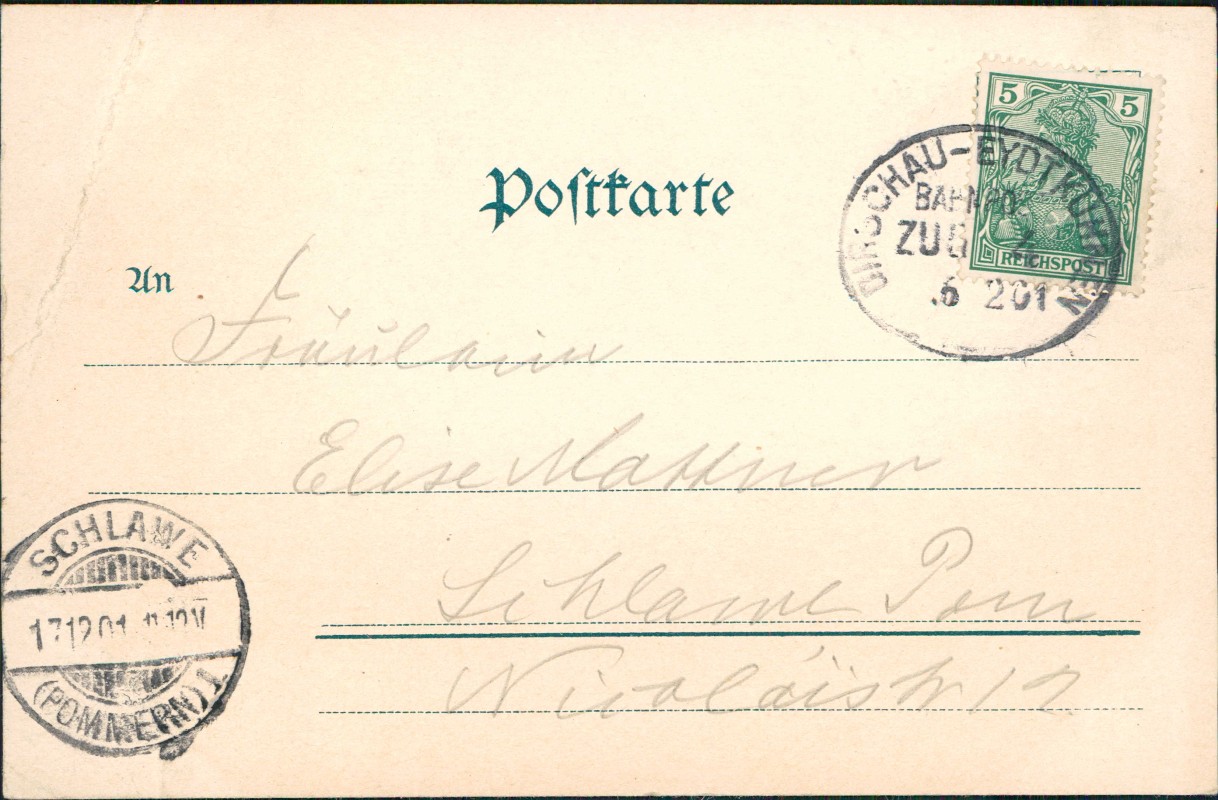 Postkarte
5 5
REICHSPOST
DIRSCHAU-EYDTKUHNEN
BAHNPO
ZUG
.6 201
An
Fräulein
Elise Mattner
Schlawe Pom
Nicoláistr 17
SCHLAWE
17 12 01 11-12 V
(POMMERN) 1